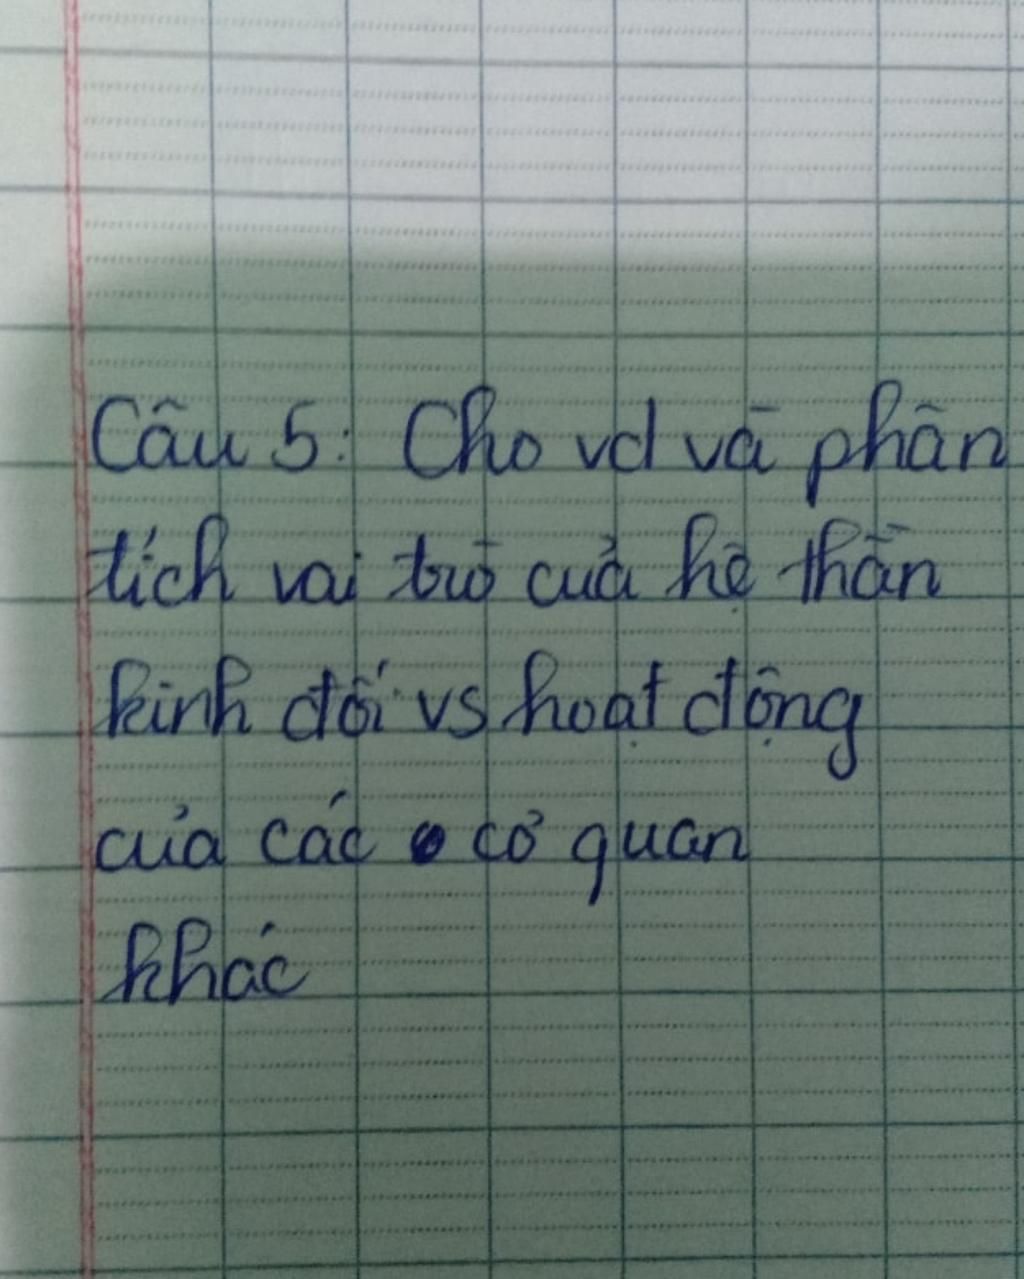 Câu 5: Cho vd và phân
tích vai trò của hệ thần
kinh đối vs hoạt động
của các cơ quan
khác